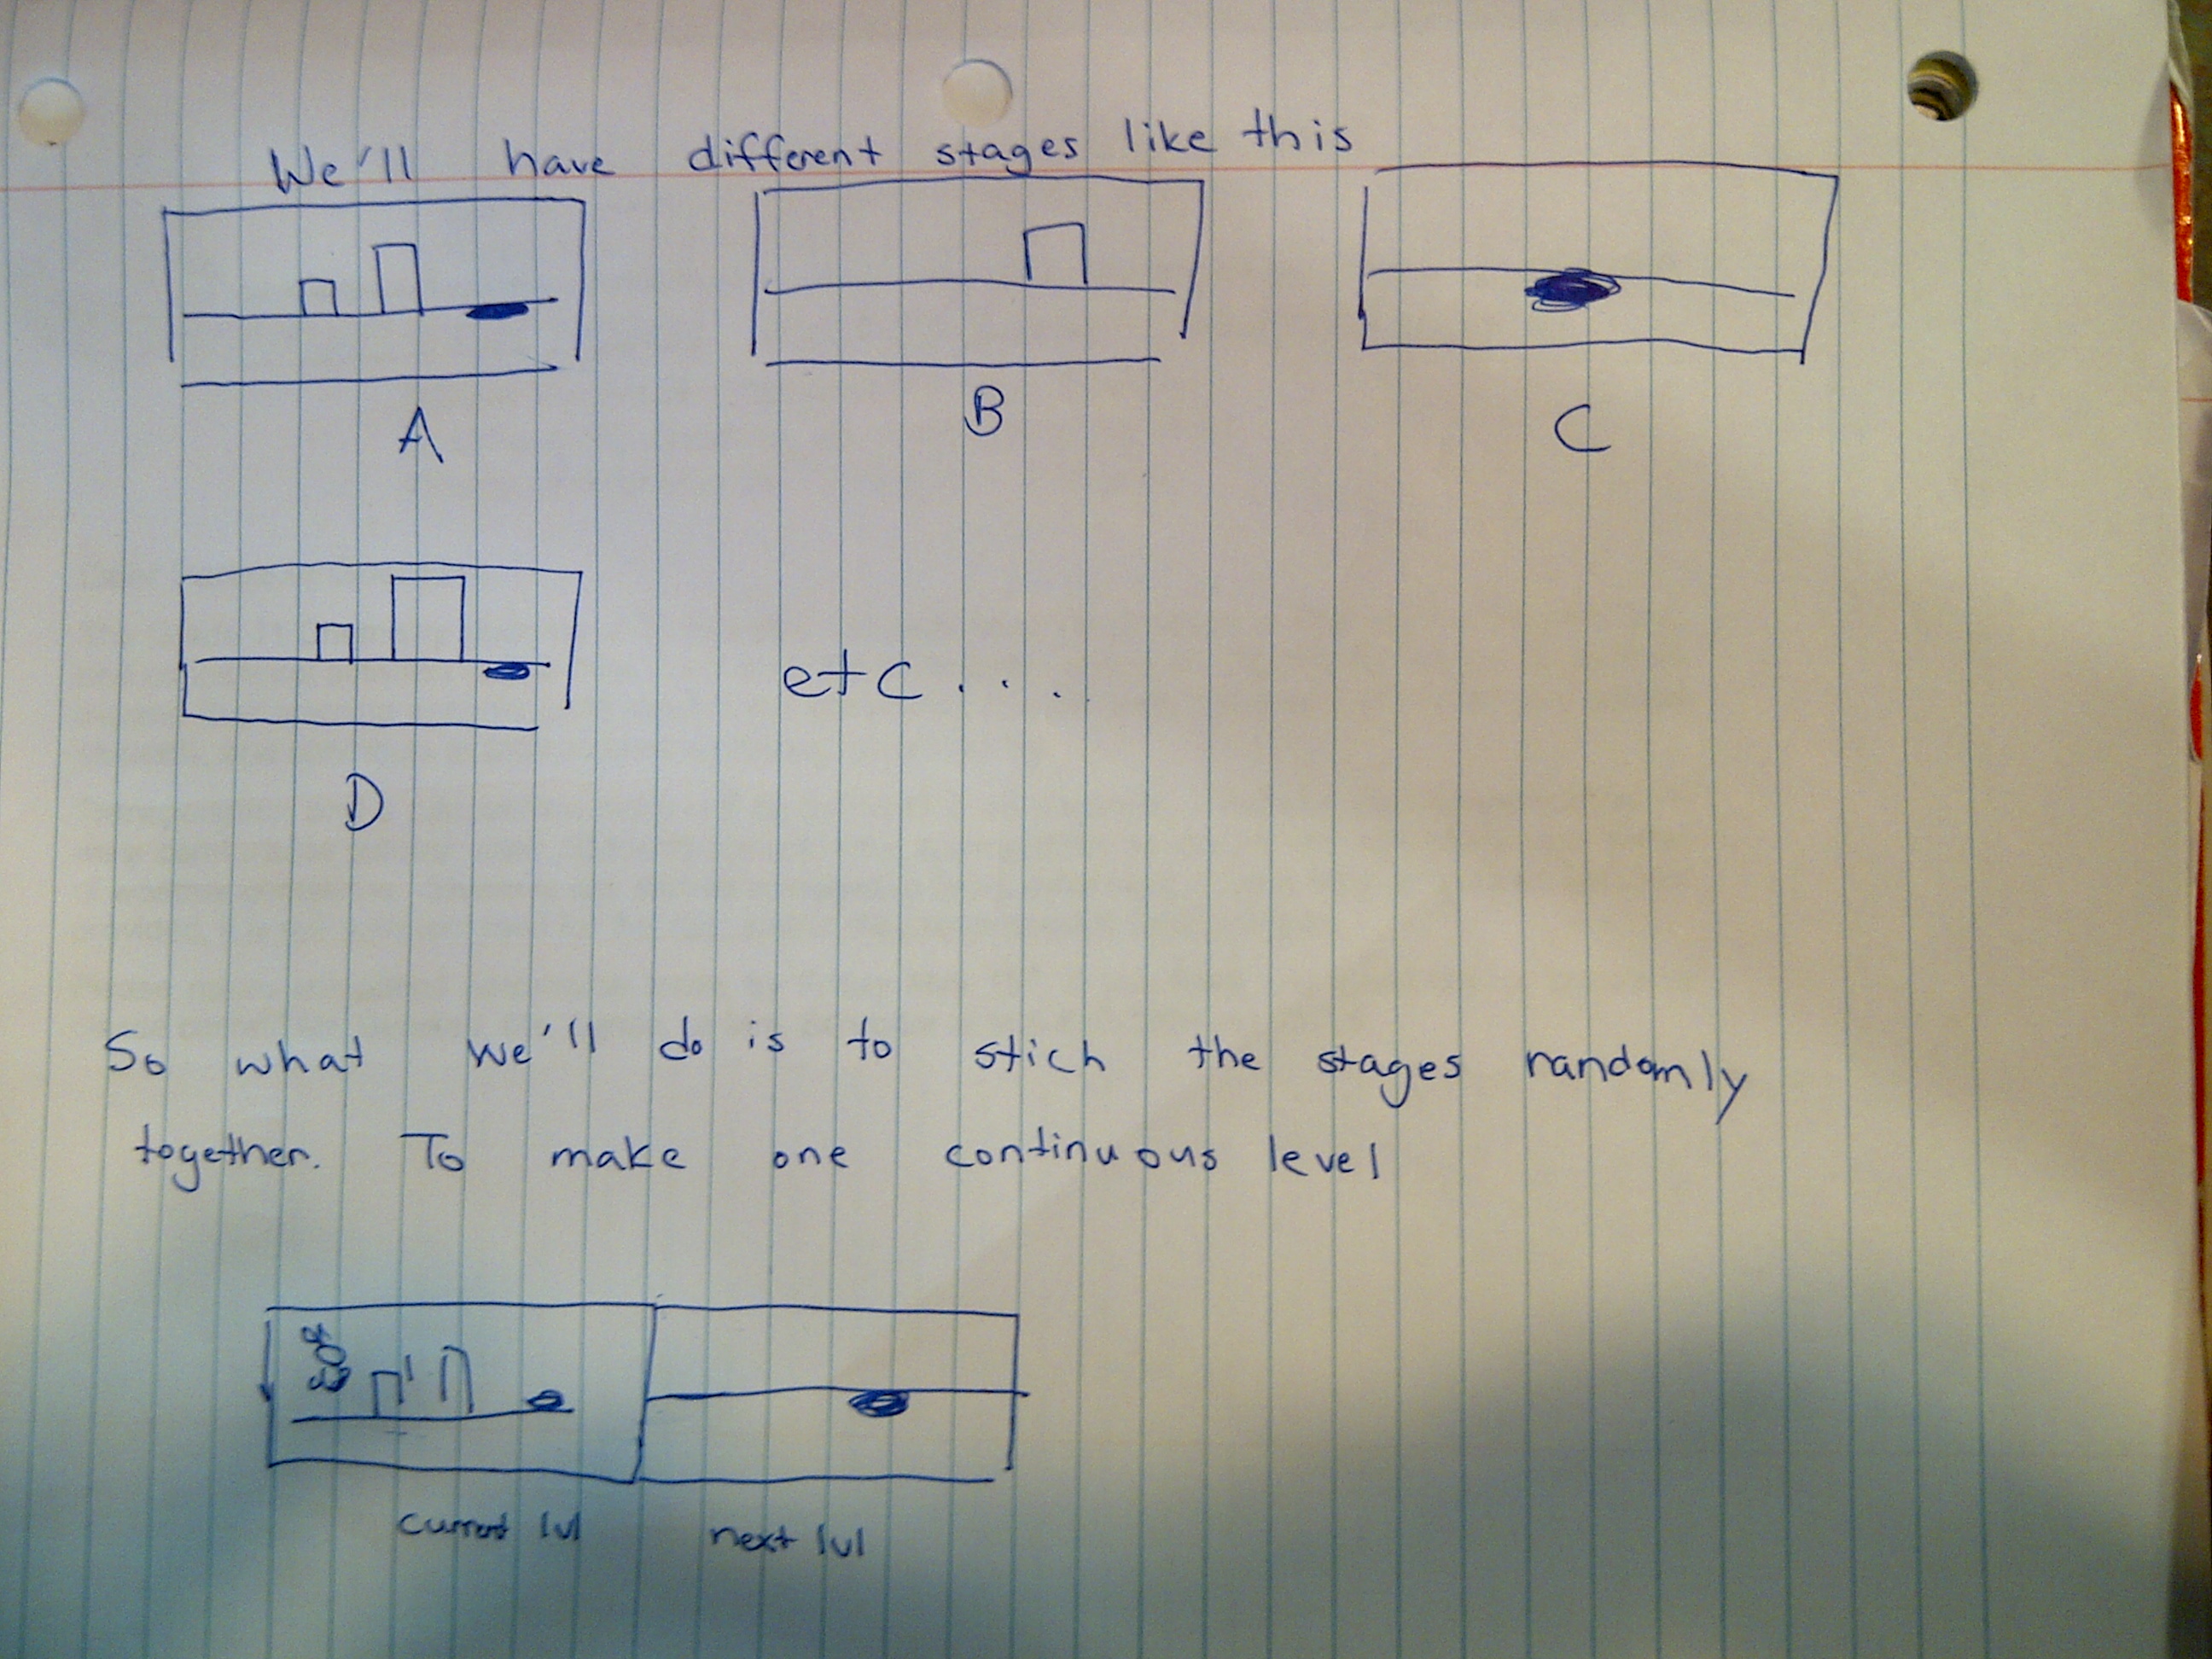 We'll have different stages like this
A
B
C
D
etc...
So what we'll do is to stich the stages randomly
together. To make one continuous level
current lvl
next lvl